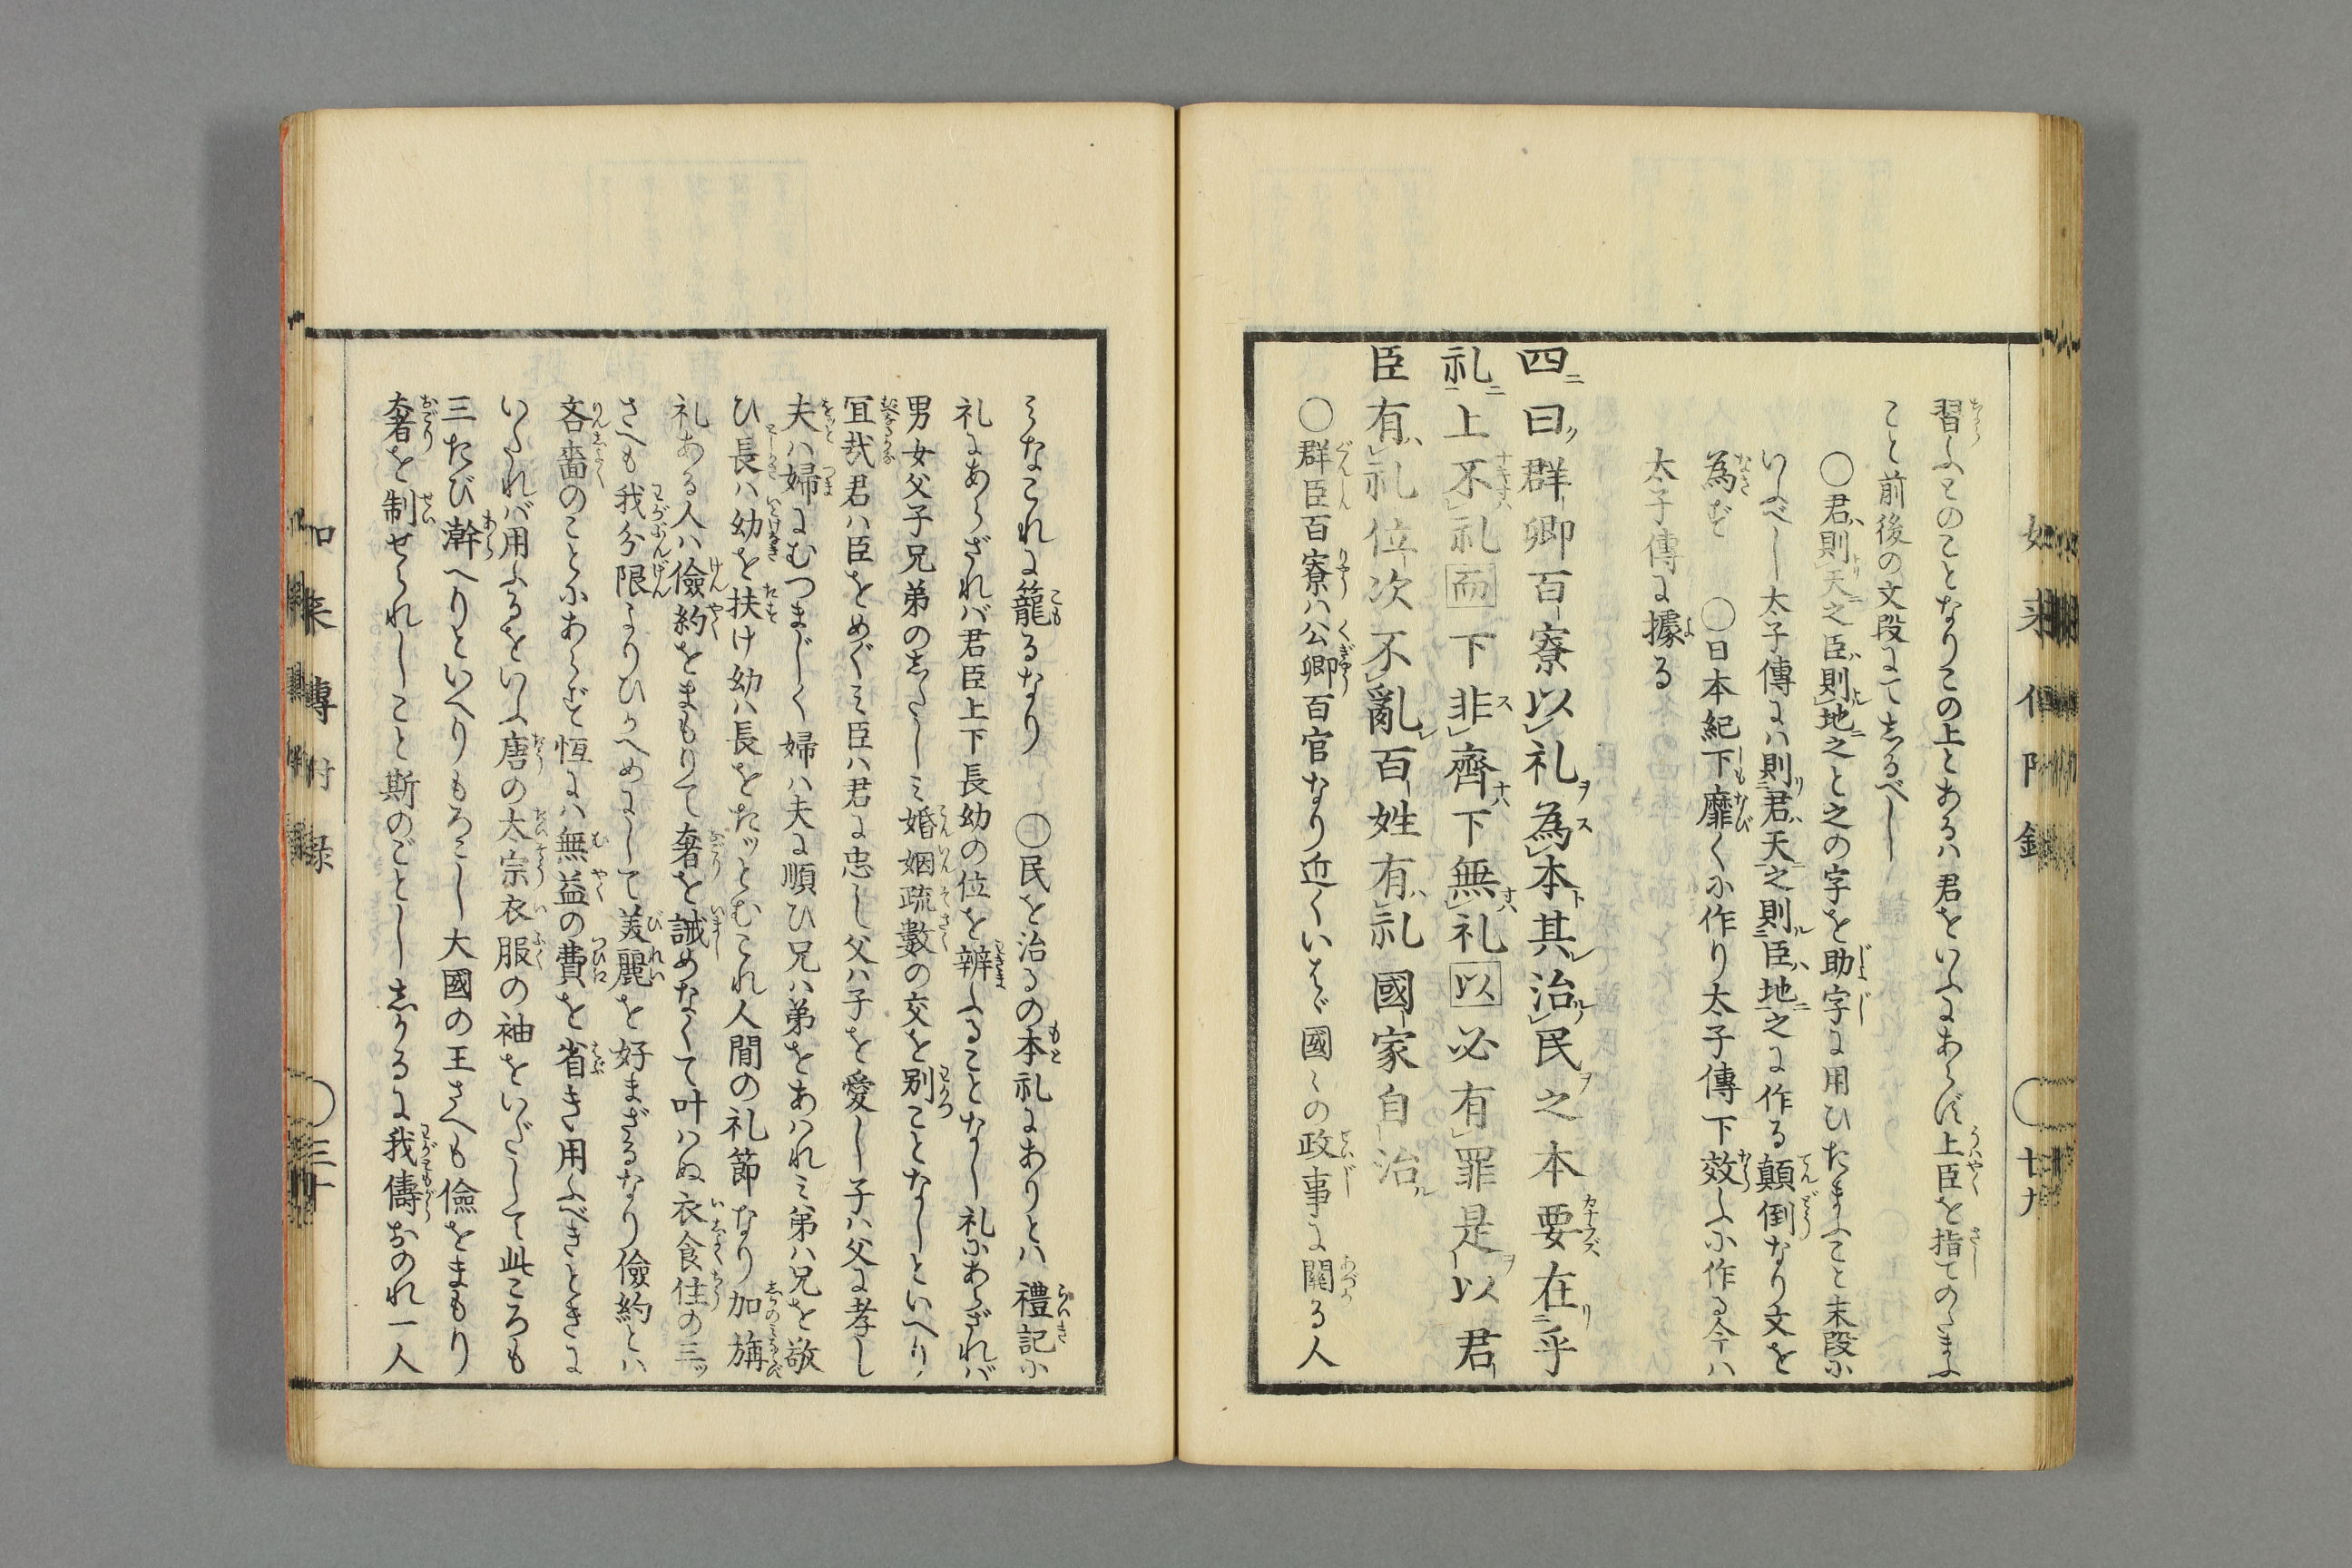 習ふとのことなりこの上とあるハ君をいふにあらず上臣を指てのたまふ
こと前後の文段にて志るべし
〇君則天之臣則地之と之の字を助字に用ひたまふこと末段に
いふべし太子傳にハ則君天之則臣地之に作る顛倒なり文を
為さず 〇日本紀下靡くに作り太子傳下效ふに作る今ハ
太子傳に據る
四曰群卿百寮以礼為本其治民之本要在乎
礼上不礼而下非齊下無礼以必有罪是以君
臣有礼位次不亂百姓有礼國家自治
〇群臣百寮ハ公卿百官なり近くいはゞ國々の政事に關る人
如来傳附録 〇廿九
みなこれに籠るなり 〇民を治るの本礼にありとハ禮記に
礼にあらざれバ君臣上下長幼の位を辨ふることなし礼にあらざれバ
男女父子兄弟の志たしミ婚姻疏數の交を別ことなしといへり
冝哉君ハ臣をめぐミ臣ハ君に忠し父ハ子を愛し子ハ父に孝し
夫ハ婦にむつまじく婦ハ夫に順ひ兄ハ弟をあハれミ弟ハ兄を敬
ひ長ハ幼を扶け幼ハ長をたッとむこれ人間の礼節なり加旃
礼ある人ハ儉約をまもりて奢を誡めなくて叶ハぬ衣食住の三ッ
さへも我分限よりひかへめにして美麗を好まざるなり儉約とハ
吝嗇のことにあらず恆にハ無益の費を省き用ふべきときに
いたれバ用ふるをいふ唐の太宗衣服の袖をいだして此ころも
三たび澣へりといへりもろこし大國の王さへも儉をまもり
奢を制せられしこと斯のごとし志かるに我儔おのれ一人
如来傳附録 〇三十